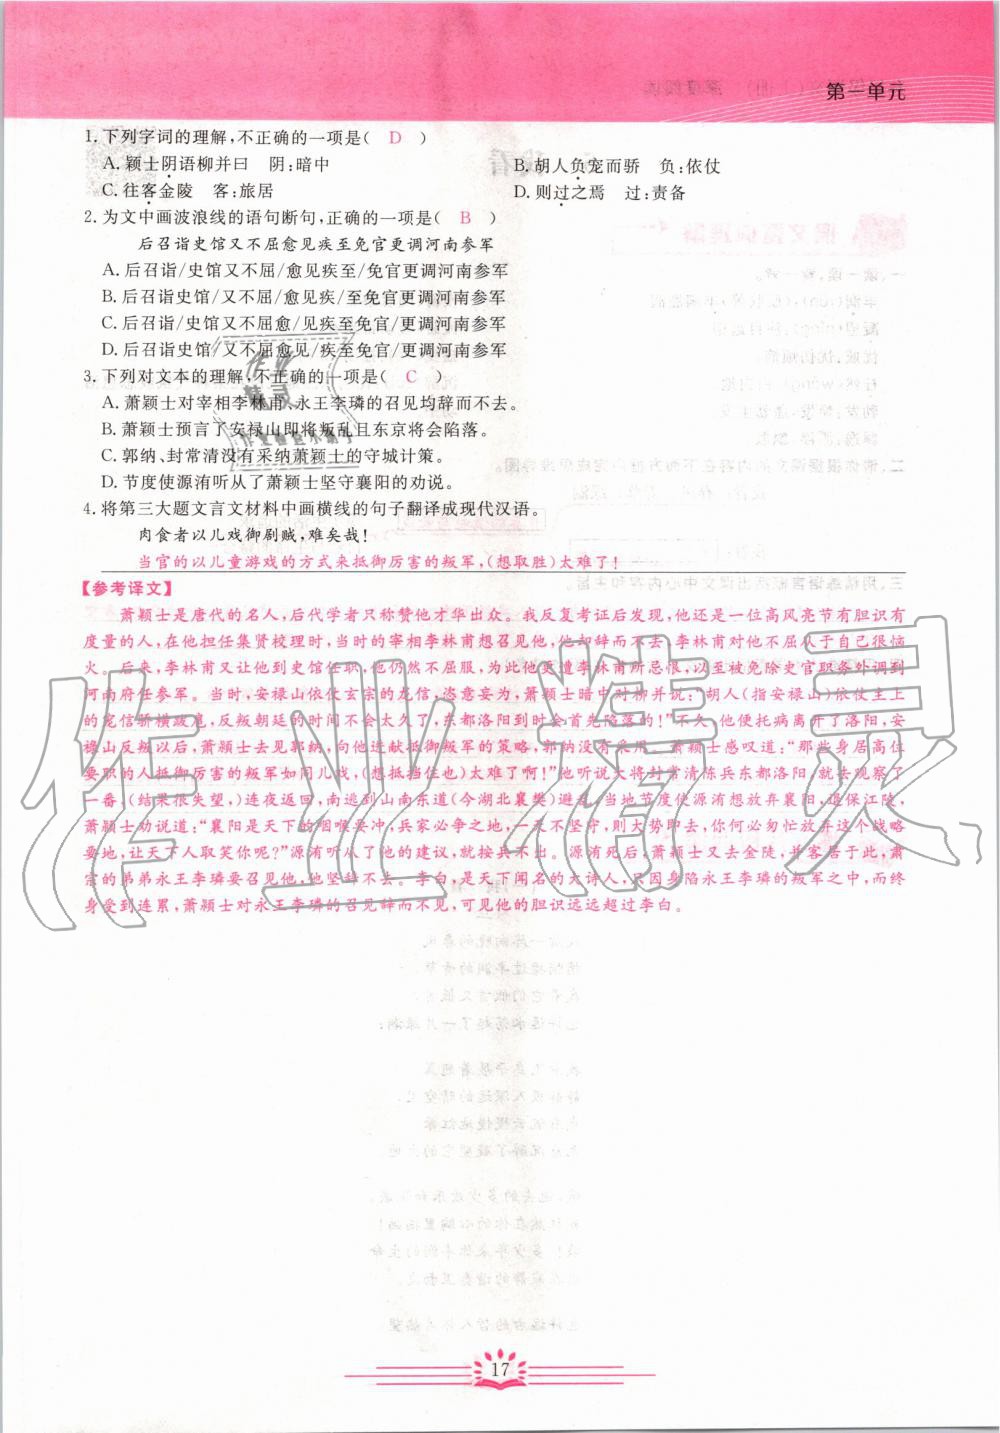 第一单元
1. 下列字词的理解,不正确的一项是( D )
A. 萧颖士阴语柳并曰 阴:暗中
B. 胡人负宠而骄 负:依仗
C. 往客金陵 客:旅居
D. 则过之焉 过:责备
2. 为文中画波浪线的语句断句,正确的一项是( B )
后召诣史馆又不屈愈见疾至免官更调河南参军
A. 后召诣/史馆又不屈/愈见疾至/免官更调河南参军
B. 后召诣史馆/又不屈/愈见疾/至免官更调河南参军
C. 后召诣/史馆又不屈/愈见疾/至免官更调河南参军
D. 后召诣史馆/又不屈愈见/疾至免官/更调河南参军
3. 下列对文本的理解,不正确的一项是( C )
A. 萧颖士对宰相李林甫、永王李璘的召见均辞而不去。
B. 萧颖士预言了安禄山即将叛乱且东京将会陷落。
C. 郭纳、封常清没有采纳萧颖士的守城计策。
D. 节度使源洧听从了萧颖士坚守襄阳的劝说。
4. 将第三大题文言文材料中画横线的句子翻译成现代汉语。
肉食者以儿戏御剧贼,难矣哉!
当官的以儿童游戏的方式来抵御厉害的叛军,(想取胜)太难了!
【参考译文】
萧颖士是唐代的名人,后代学者只称赞他才华出众。我反复考证后发现,他还是一位高风亮节有胆识有
度量的人,在他担任集贤校理时,当时的宰相李林甫想召见他,他却辞而不去,李林甫对他不屈从于自己很恼
火。后来,李林甫又让他到史馆任职,他仍然不屈服,为此他更遭李林甫所忌恨,以至被免除史官职务外调到
河南府任参军。当时,安禄山依仗玄宗的宠信,恣意妄为,萧颖士暗中对柳并说:“胡人(指安禄山)依仗主上
的宠信骄横跋扈,反叛朝廷的时间不会太久了,东都洛阳到时会首先陷落的!”不久,他便托病离开了洛阳,安
禄山反叛以后,萧颖士去见郭纳,向他进献抵御叛军的策略,郭纳没有采用。萧颖士感叹道:“那些身居高位
要职的人抵御厉害的叛军如同儿戏,(想抵挡住也)太难了啊!”他听说大将封常清陈兵东都洛阳,就去观察了
一番,(结果很失望),连夜返回,南逃到山南东道(今湖北襄樊)避难。当地节度使源洧想放弃襄阳,退保江陵,
萧颖士劝说道:“襄阳是天下的咽喉要冲,兵家必争之地,一天不坚守,则大势即去,你何必匆忙放弃这个战略
要地,让天下人取笑你呢?”源洧听从了他的建议,就按兵不出。源洧死后,萧颖士又去金陵,并客居于此,肃
宗的弟弟永王李璘要召见他,他坚辞不去。李白,是天下闻名的大诗人,只因身陷永王李璘的叛军之中,而终
身受到连累,萧颖士对永王李璘的召见辞而不见,可见他的胆识远远超过李白。
17
作业精灵
作业
精灵